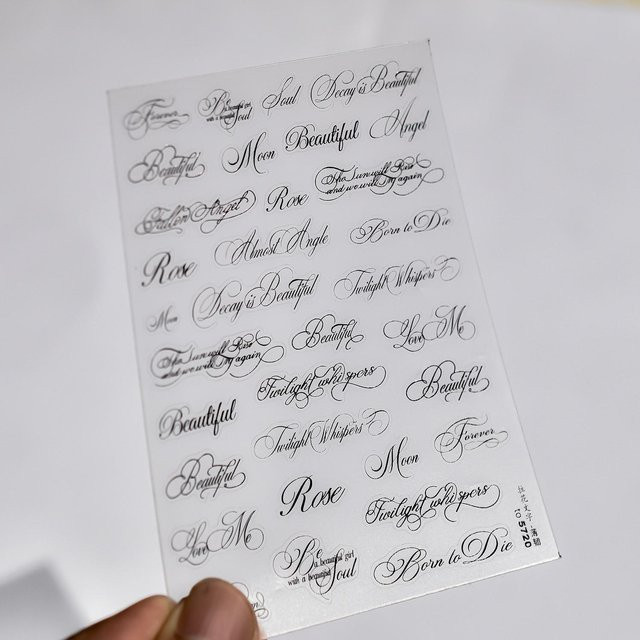 Forever
Be a beautiful girl with a beautiful Soul
Soul
Decay is Beautiful
Beautiful
Moon
Beautiful
Angel
Fallen Angel
Rose
The Sun will Rise
and we will try again
Rose
Almost Angle
Born to Die
Moon
Decay is Beautiful
Twilight Whispers
The Sun will Rise
and we will try again
Beautiful
Love Me
Beautiful
Twilight whispers
Beautiful
Twilight Whispers
Forever
Beautiful
Rose
Moon
Love Me
Twilight whispers
Be a beautiful girl
with a beautiful Soul
Born to Die
5720